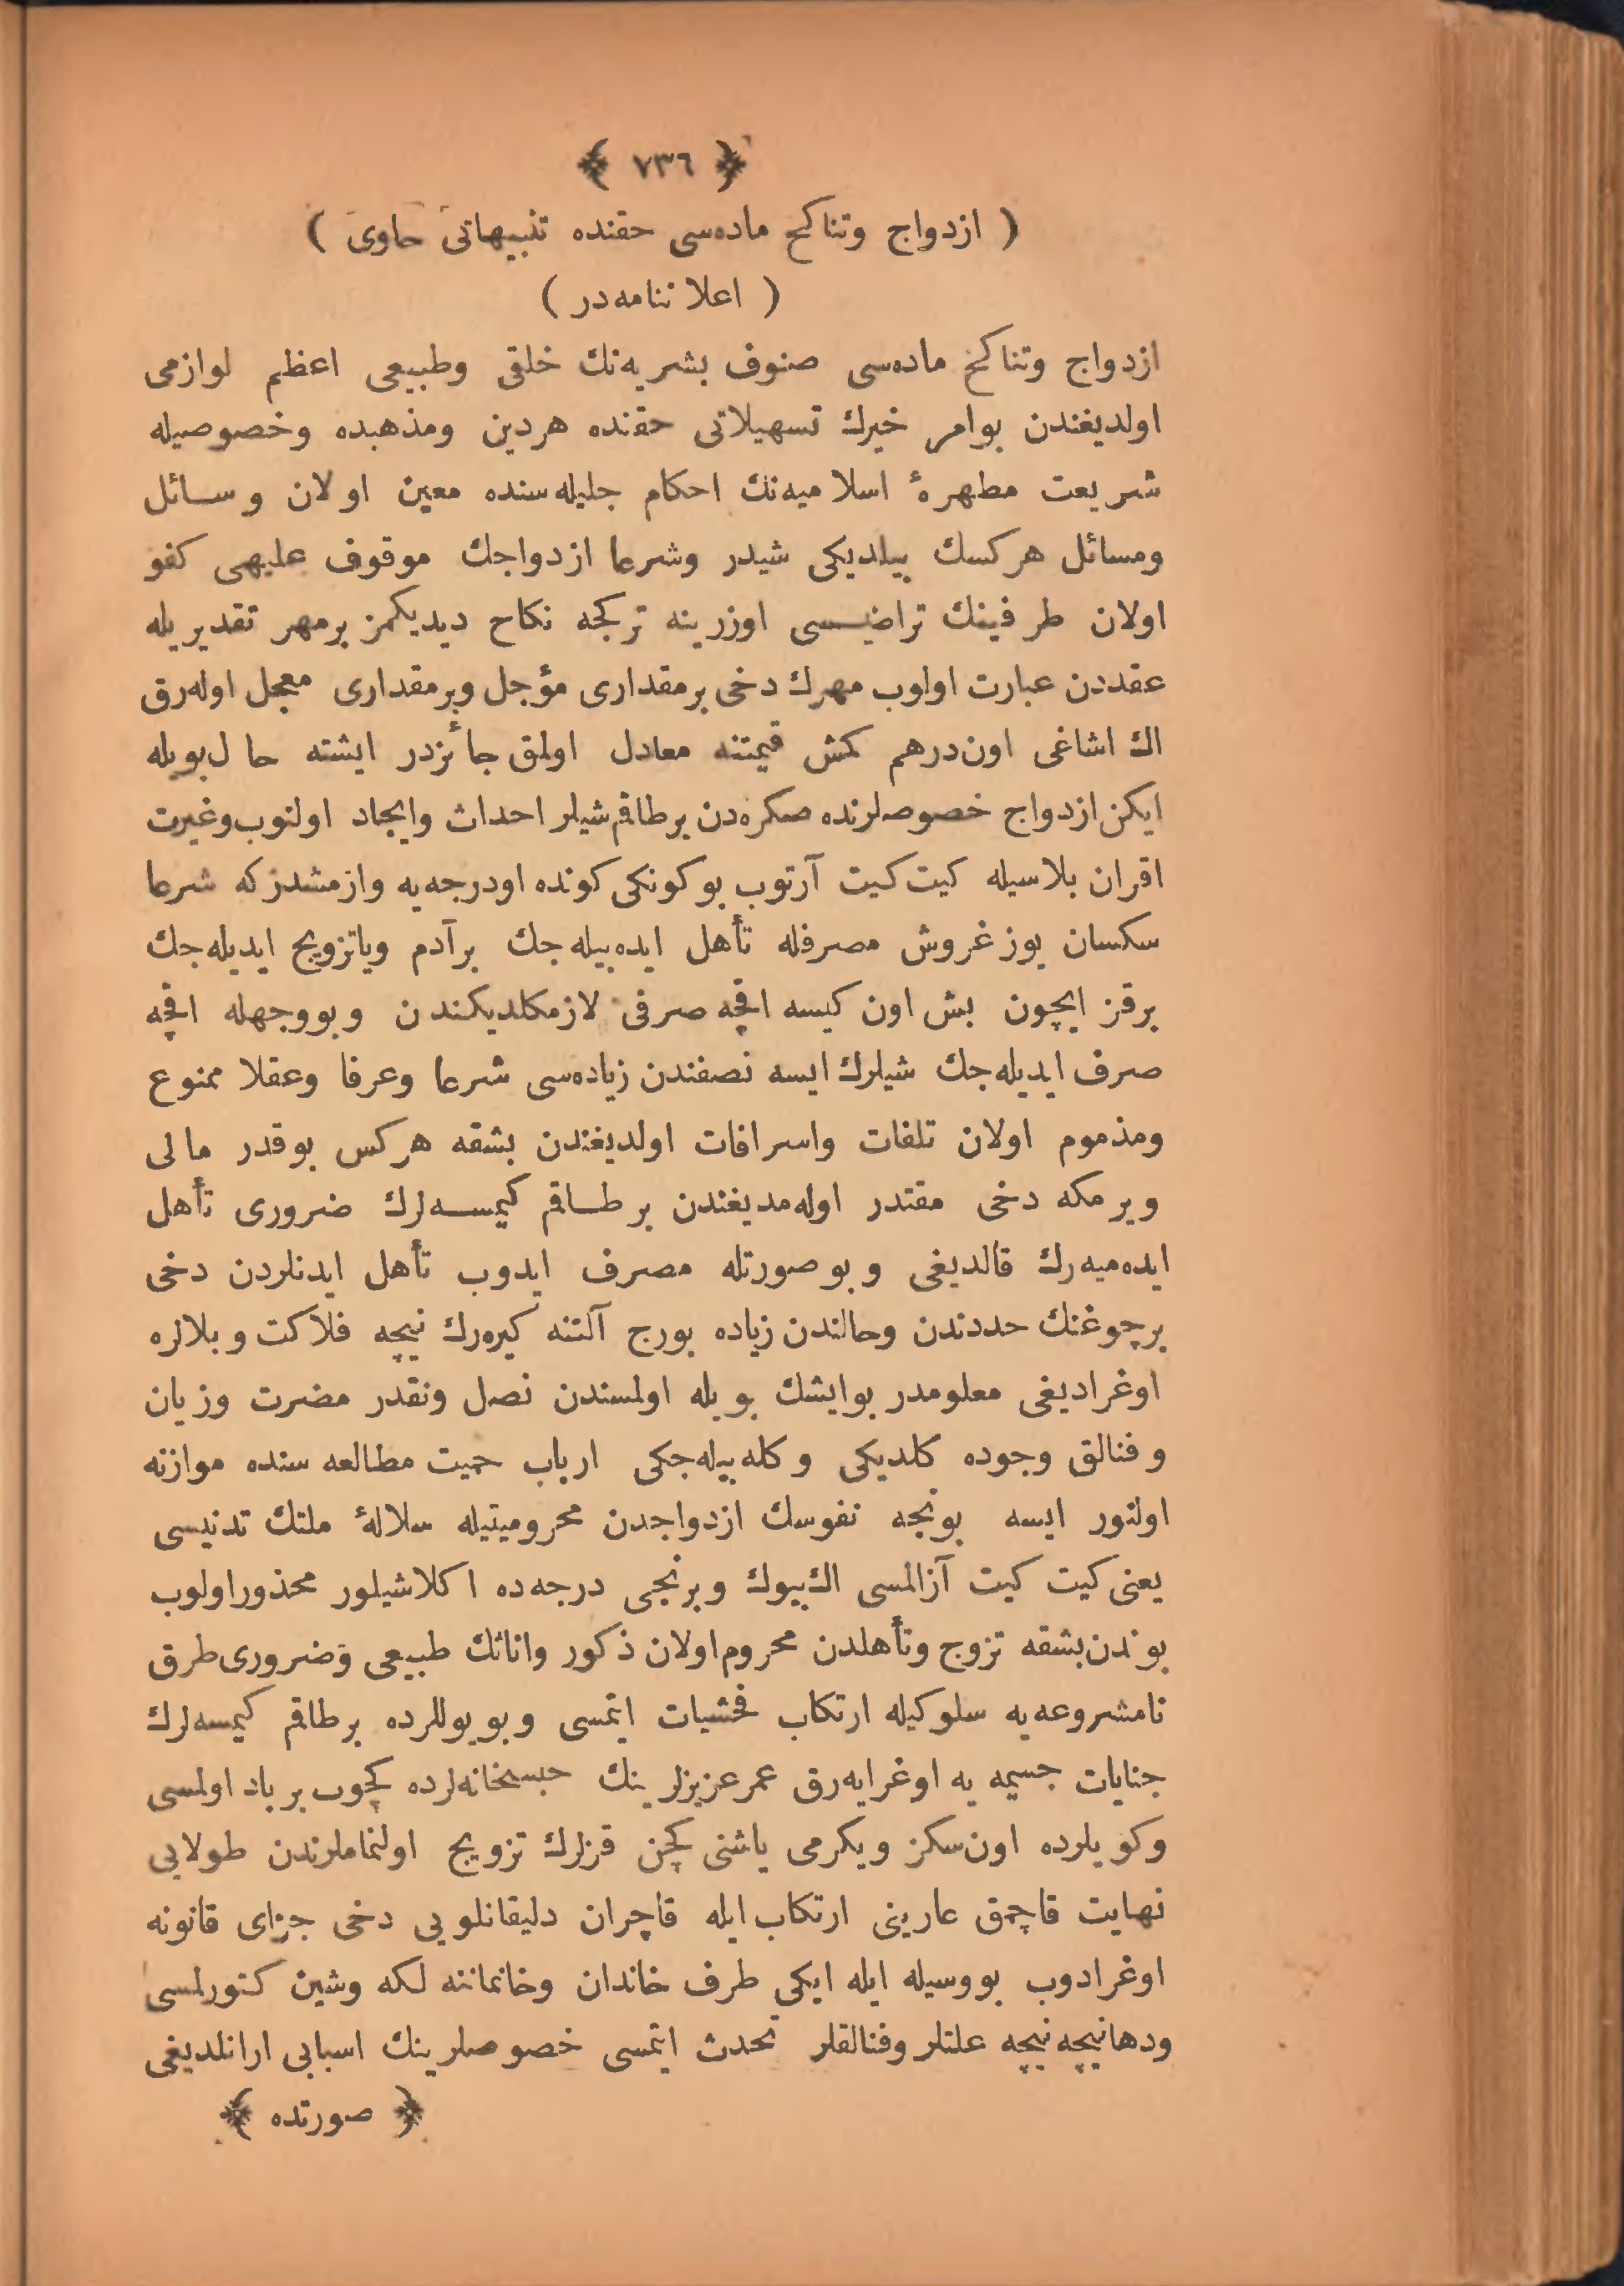 ﴿ ٧٣٦ ﴾
( ازدواج وتناكح ماده‌سى حقنده تنبيهاتى حاوى )
( اعلاننامه‌در )
ازدواج وتناكح ماده‌سى صنوف بشريه‌نك خلقى وطبيعى اعظم لوازمى
اولديغندن بوامر خيرك تسهيلاتى حقنده هردين ومذهبده وخصوصيله
شريعت مطهرۀ اسلاميه‌نك احكام جليله‌سنده معين اولان وسائل
ومسائل هركسك بيلديكى شيدر وشرعا ازدواجك موقوف عليهى كفو
اولان طرفينك تراضيسى اوزرينه تركجه نكاح ديديكمز برمهر تقديريله
عقددن عبارت اولوب مهرك دخى برمقدارى مؤجل وبرمقدارى معجل اوله‌رق
اك اشاغى اون‌درهم كمش قيمتنه معادل اولمق جائزدر ايشته حال‌بويله
ايكن ازدواج خصوصلرنده صكره‌دن برطاقم شيلر احداث وايجاد اولنوب وغيرت
اقران بلاسيله كيت كيت آرتوب بوكونكى كونده اودرجه‌يه وارمشدركه شرعا
سكسان يوز غروش مصرفله تأهل ايده‌بيله‌جك برآدم وياتزويج ايديله‌جك
برقز ايچون بش اون كيسه اقچه صرفى لازمكلديكندن وبووجهله اقچه
صرف ايديله‌جك شيلرك ايسه نصفندن زياده‌سى شرعا وعرفا وعقلا ممنوع
ومذموم اولان تلفات واسرافات اولديغندن بشقه هركس بوقدر مالى
ويرمكه دخى مقتدر اوله‌مديغندن برطاقم كيمسه‌لرك ضرورى تأهل
ايده‌ميه‌رك قالديغى وبوصورتله مصرف ايدوب تأهل ايدنلردن دخى
برچوغنك حددندن وحالندن زياده بورج آلتنه كيره‌رك نيچه فلاكت وبلالره
اوغراديغى معلومدر بوايشك بويله اولمسندن نصل ونقدر مضرت وزيان
وفنالق وجوده كلديكى وكله‌بيله‌جكى ارباب حميت مطالعه سنده موازنه
اولنور ايسه بونجه نفوسك ازدواجدن محروميتيله سلالۀ ملتك تدنيسى
يعنى كيت كيت آزالمسى اك‌بيوك وبرنجى درجه‌ده اكلاشيلور محذور اولوب
بوندن‌بشقه تزوج وتأهلدن محروم اولان ذكور واناثك طبيعى وضرورى طرق
نامشروعه‌يه سلوكيله ارتكاب فحشيات ايتمسى وبويوللرده برطاقم كيمسه‌لرك
جنايات جسيمه يه اوغرايه‌رق عمرعزيزلرينك حبسخانه‌لرده كچوب برباد اولمسى
وكويلرده اون‌سكز ويكرمى ياشنى كچن قزلرك تزويج اولنماملرندن طولايى
نهايت قاچمق عارينى ارتكاب ايله قاچران دليقانلويى دخى جزاى قانونه
اوغرادوب بووسيله ايله ايكى طرف خاندان وخانماننه لكه وشين كتورلمسى
ودهانيچه نيچه علتلر وفنالقلر تحدث ايتمسى خصوصلرينك اسبابى ارانلديغى
﴿ صورتده ﴾